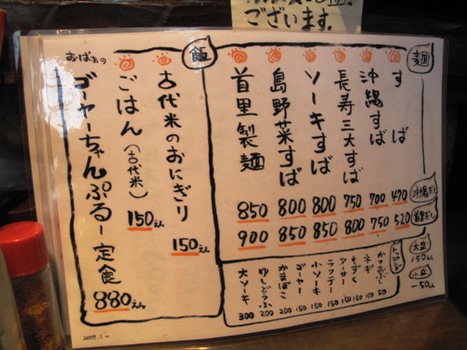 ございます。
麺
すば
沖縄すば
長寿三大すば
ソーキすば
島野菜すば
首里製麺
470 700 750 800 800 850
沖縄だし
520 750 800 850 850 900
首里だし
トッピング
かつおぶし 50
ネギ 50
もずく 150
アーサー 150
ラフテー 150
小ソーキ 150
ゴーヤー 150
かまぼこ 200
ゆしどうふ 200
大ソーキ 300
大盛
150えん
小盛
-50えん
飯
古代米のおにぎり
150えん
ごはん(古代米)
150えん
おばぁの
ゴーヤーちゃんぷるー定食
880えん
2009.1~